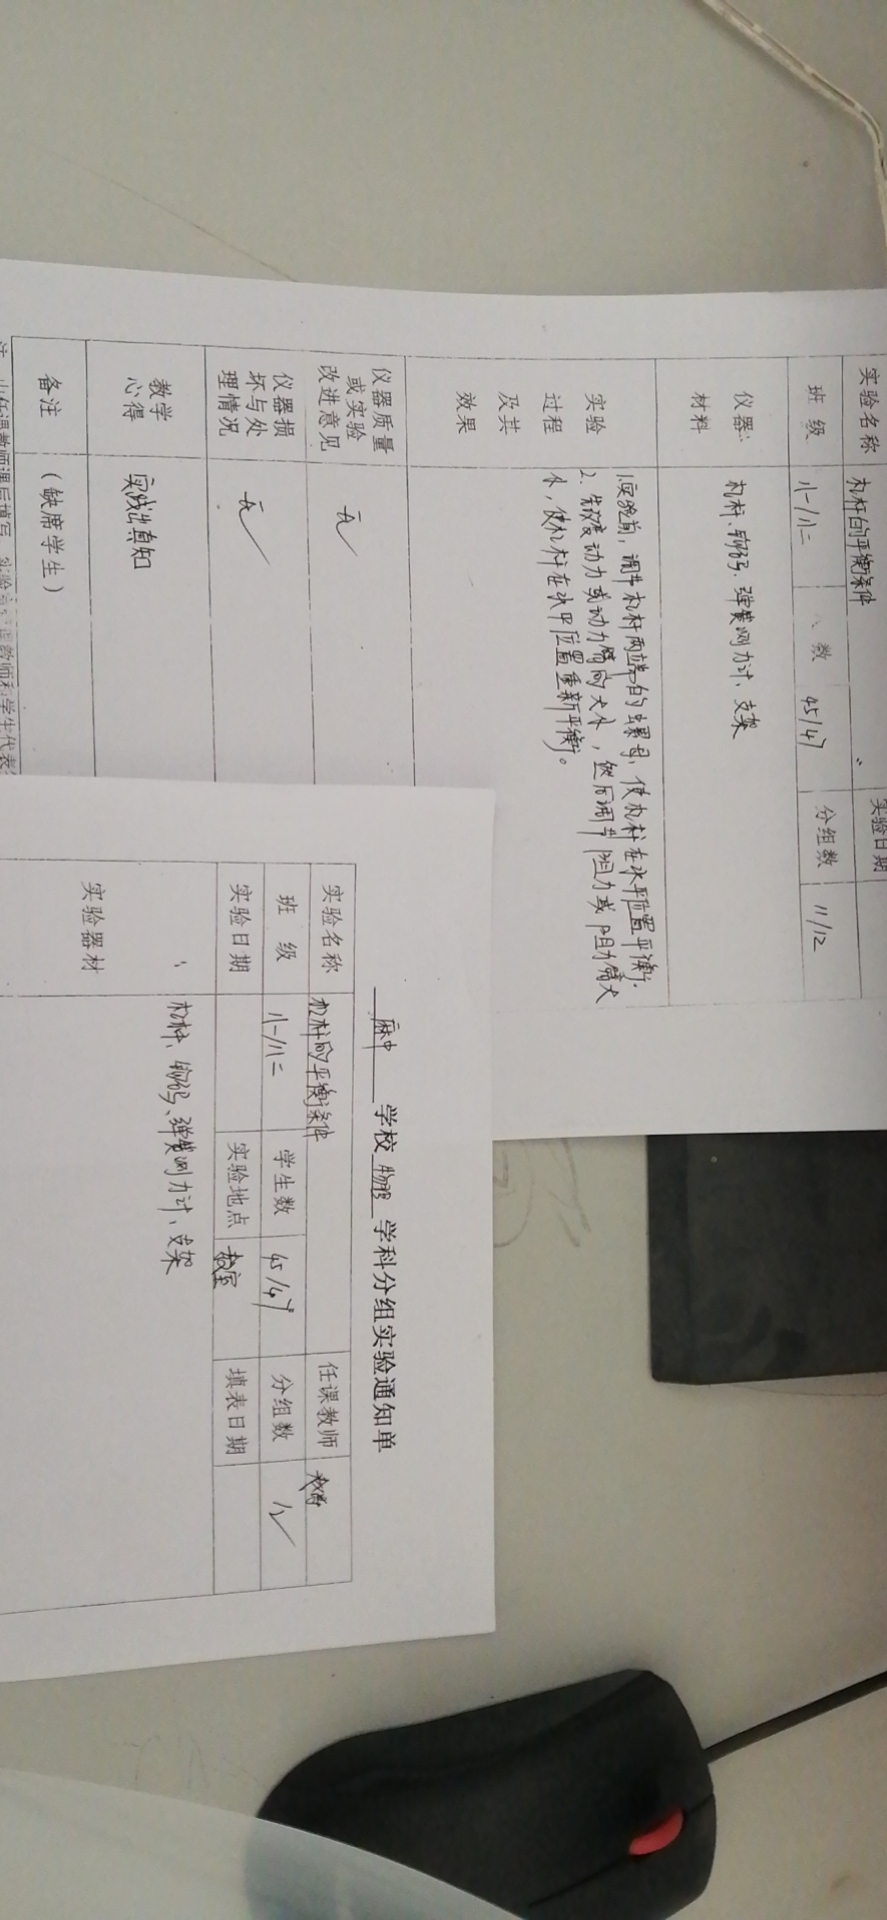 实验名称 杠杆的平衡条件 实验日期
班 级 八一/八二 数 45/47 分组数 11/12
仪器
材料
杠杆、钩码、弹簧测力计、支架
实验
过程
及其
效果
1.实验前,调节杠杆两端的螺母,使杠杆在水平位置平衡.
2.先改变动力或动力臂的大小,然后调节阻力或阻力臂大
小,使杠杆在水平位置重新平衡。
仪器质量
或实验
改进意见
无
仪器损
坏与处
理情况
无
教学
心得
实践出真知
备注 (缺席学生)
注:由任课教师课后填写
麻中 学校 物理 学科分组实验通知单
实验名称 杠杆的平衡条件 任课教师
班 级 八一/八二 学生数 45/47 分组数 12
实验日期 实验地点 教室 填表日期
实验器材 杠杆、钩码、弹簧测力计、支架